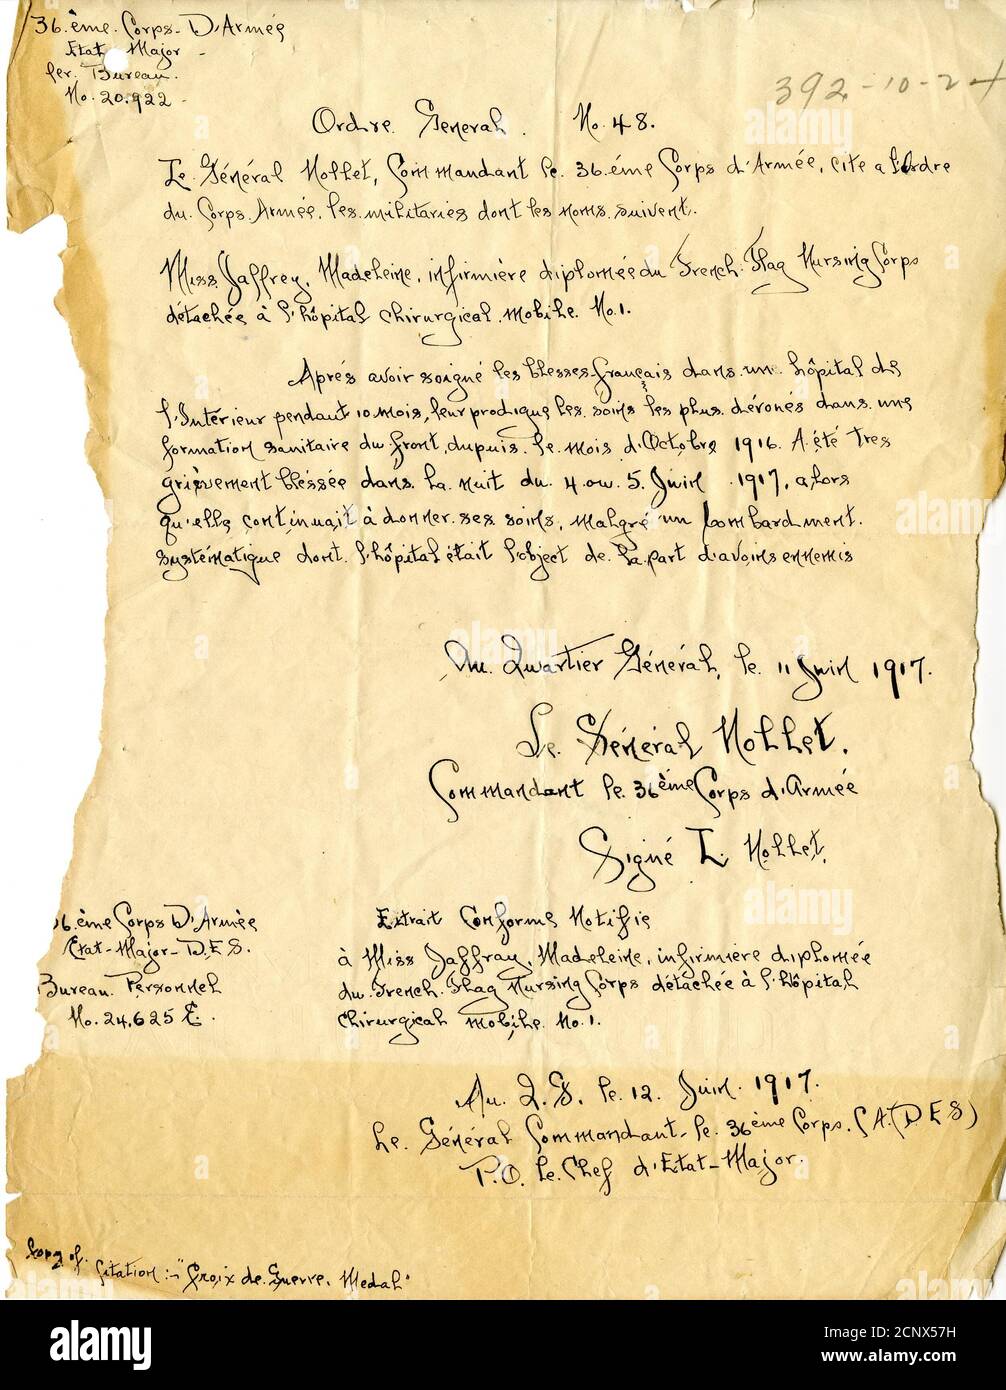 36.ème. Corps. D'Armée
Etat Major -
1er. Bureau.
No. 20.922 -
392-10-24
Ordre. General. No. 48.
Le. Général Nollet, Commandant le. 36.éme Corps d'Armée, cite a l'Ordre
du. Corps. Armée. les. militaries dont les noms. suivent.
Miss Jaffrey, Madeleine, infirmière diplomée du French. Flag Nursing Corps
détachée à l'hôpital chirurgical. mobile. No.1.
Aprés avoir soigné les blesses français dans. un. hôpital de
l'Interieur pendant 10 mois, leur prodique les. soins les plus. dévonés dans. une
formation sanitaire du front, dupuis. le. mois d'Octobre 1916. A été Tres
grièvement bléssée dans. la. nuit du 4. ou. 5. Juin 1917, alors
qu'elle continuait à donner. ses soins, malgré un bombardment.
systématique dont. l'hôpital était l'object de. la. part d'avoins ennemis
Au. Quartier Général, le. 11 Juin 1917.
Le. Général Nollet.
Commandant le. 36ème Corps d'Armée
Signé L. Nollet.
36.ème Corps D'Armée
Etat-Major-D.E.S.
Bureau. Personnel
No. 24.625 E.
Extrait Conforme Notifie
à Miss Jaffray, Madeleine, infirmiere diplomée
du. French. Flag Nursing Corps détachée à l'hôpital
chirurgical mobile. No.1.
Au. Q.G. le. 12. Juin. 1917.
Le. Général Commandant. le. 36ème Corps. C A. (D E S)
P.O. le. Chef d'Etat-Major.
Copy of. Citation :- "Croix de Guerre. Medal"
alamy
Image ID: 2CNX57H
www.alamy.com